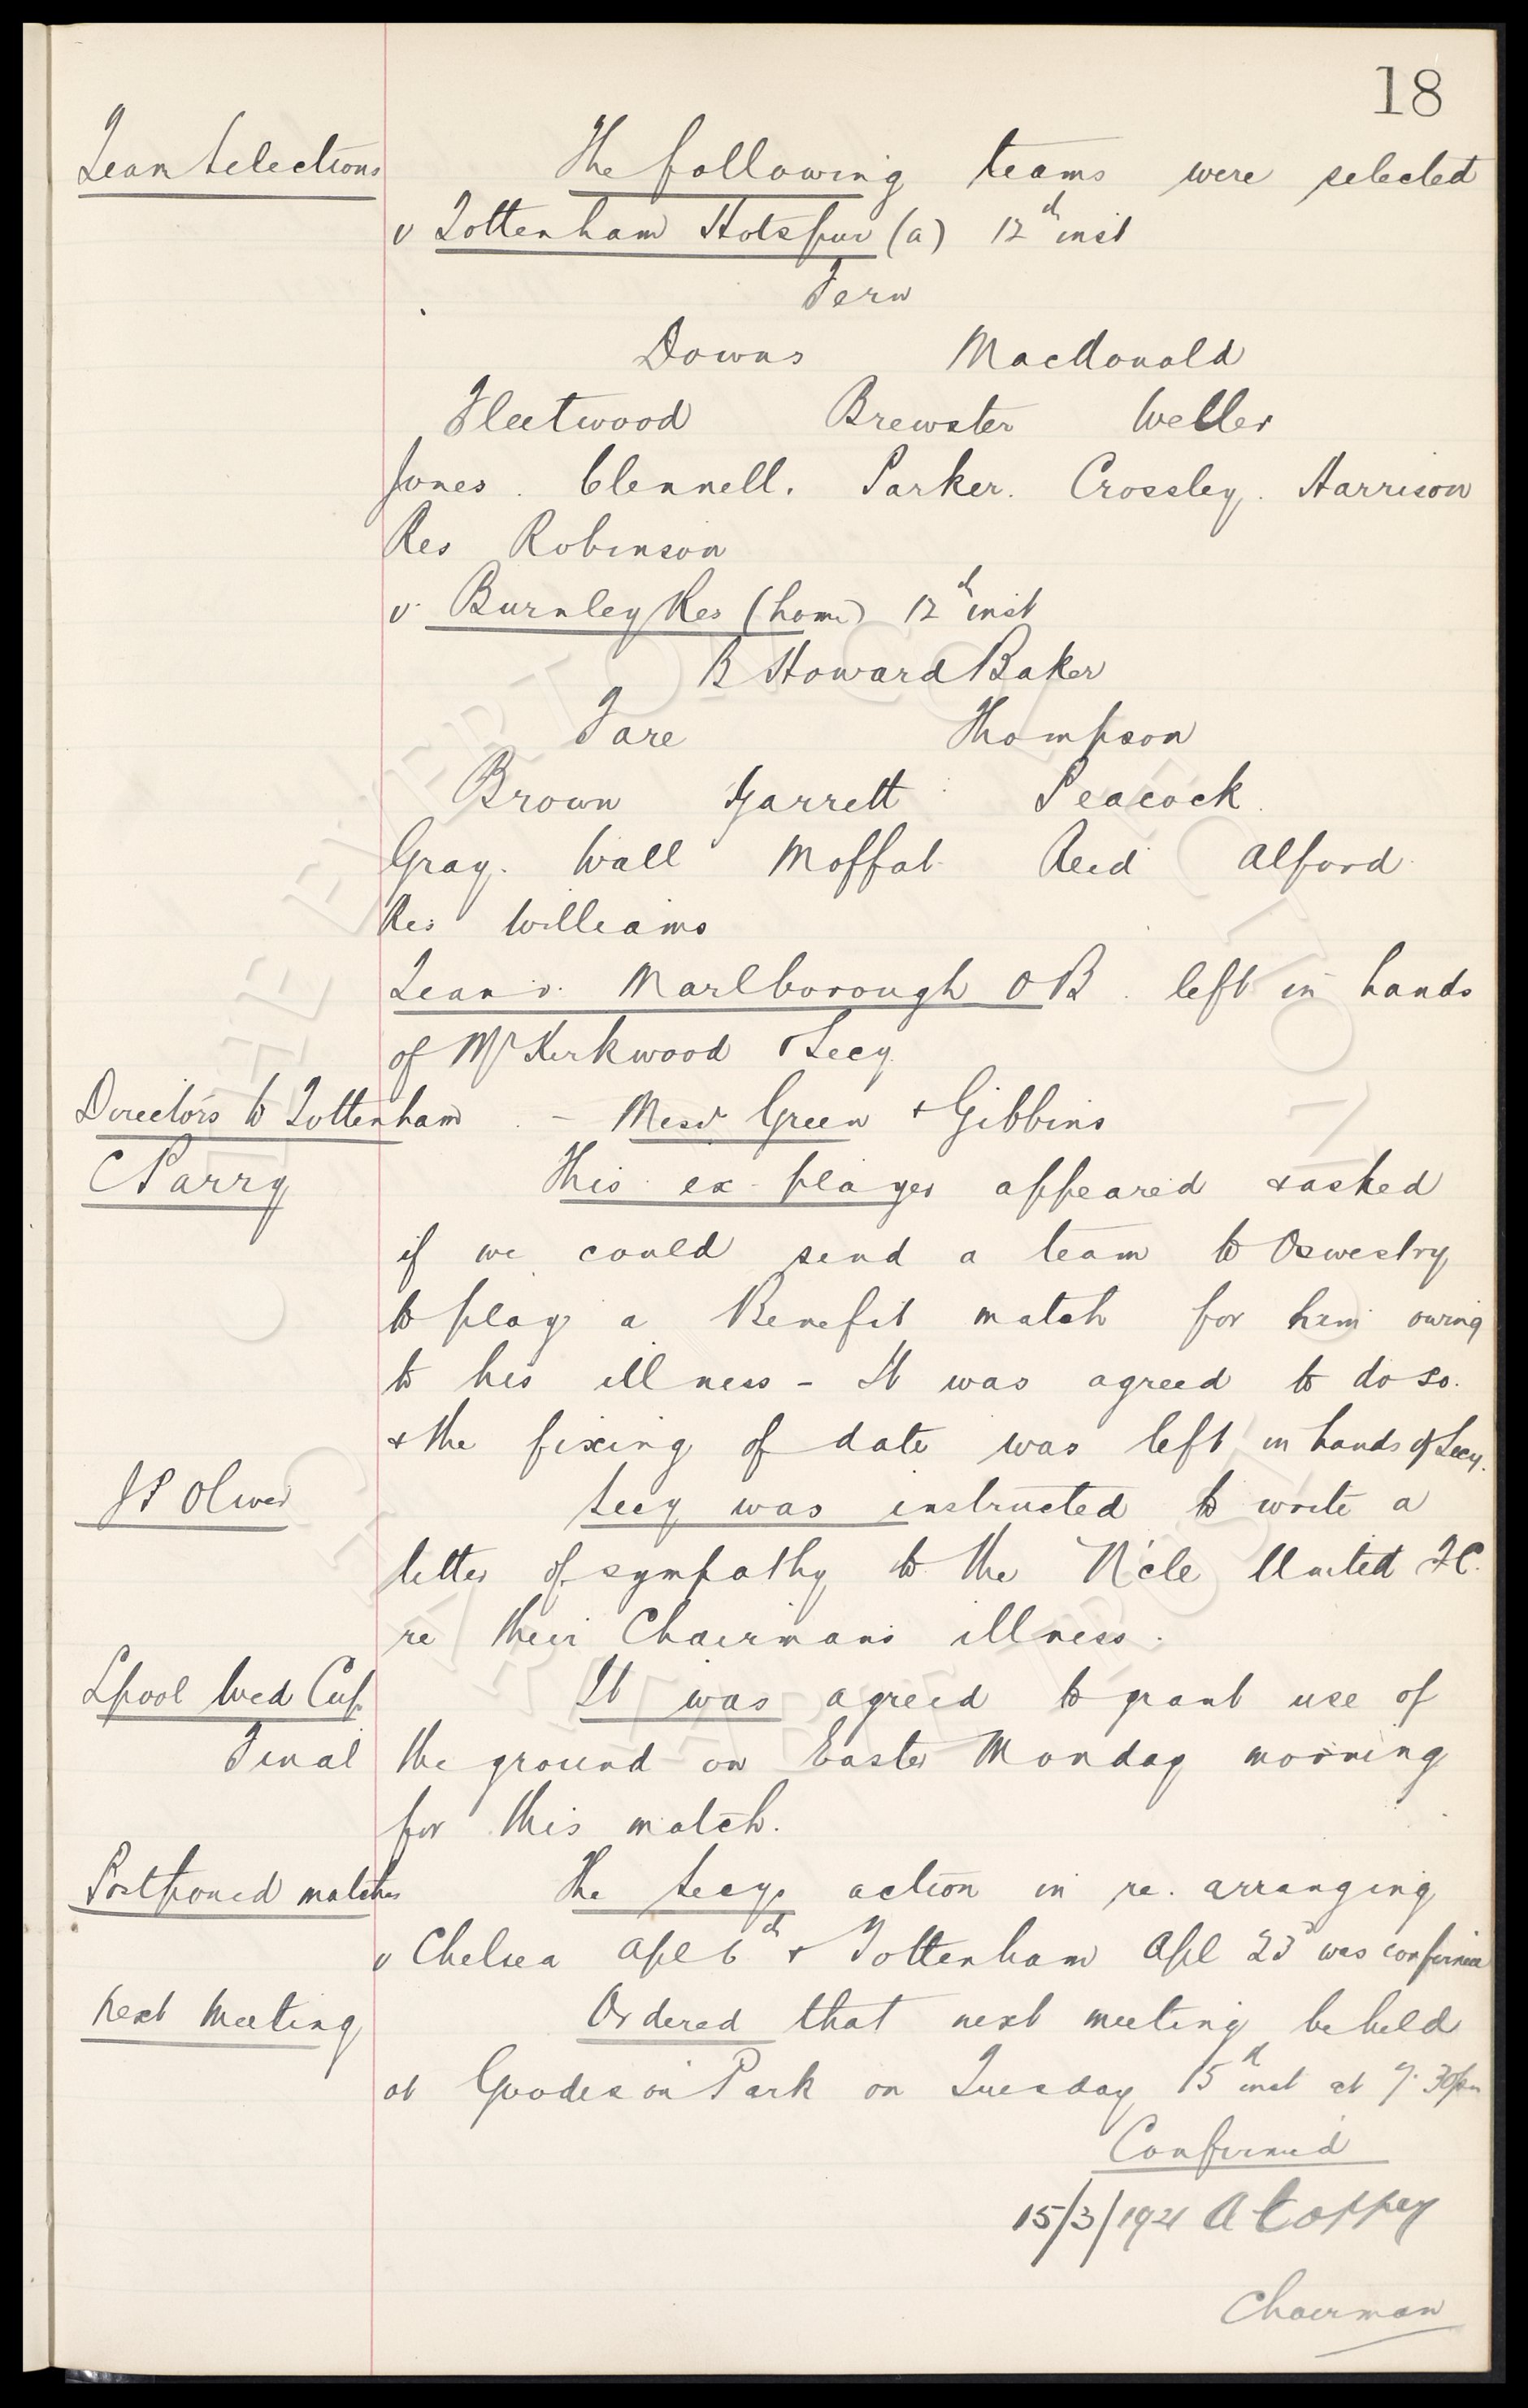 18
Team Selections The following teams were selected
v Tottenham Hotspur (a) 12th inst
Fern
Downs MacDonald
Fleetwood Brewster Weller
Jones. Clennell. Parker. Crossley. Harrison
Res Robinson
v. Burnley Res (home) 12th inst
B Howard Baker
Tare Thompson
Brown Garrett Peacock.
Gray. Wall Moffat Reid Alford.
Res Williams
Team v. Marlborough O B. left in hands
of Mr Kirkwood & Secy
Directors to Tottenham - Messrs Green & Gibbins
C Parry This ex-player appeared & asked
if we could send a team to Oswestry
to play a Benefit match for him owing
to his illness - It was agreed to do so.
& the fixing of date was left in hands of Secy.
J P Oliver Secy was instructed to write a
letter of sympathy to the N'cle United F C.
re their Chairmans illness.
Lpool Wed Cup It was agreed to grant use of
Final the ground on Easter Monday morning
for this match.
Postponed matches The Secys action in re. arranging
v Chelsea Apl 6th & Tottenham Apl 23rd was confirmed
Next Meeting Ordered that next meeting be held
at Goodison Park on Tuesday 15th inst at 7.30pm
Confirmed
15/3/1921 A Coffey
Chairman